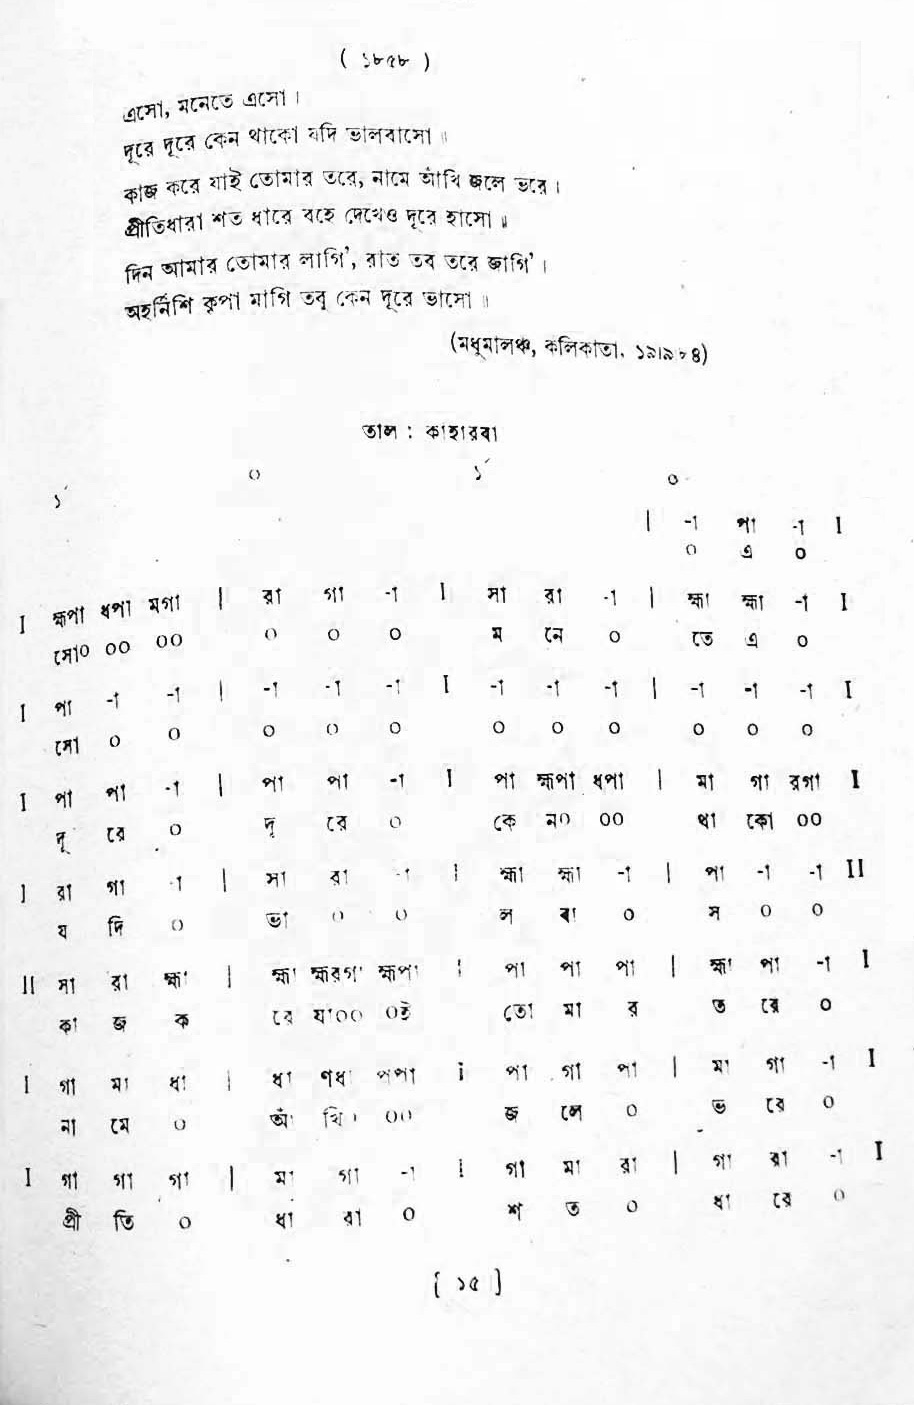 ( ১৮৫৮ )
এসো, মনেতে এসো ।
দূরে দূরে কেন থাকো যদি ভালবাসো ॥
কাজ করে যাই তোমার তরে, নামে আঁখি জলে ভরে ।
প্রীতিধারা শত ধারে বহে দেখেও দূরে হাসো ॥
দিন আমার তোমার লাগি', রাত তব তরে জাগি' ।
অহর্নিশি কৃপা মাগি তবু কেন দূরে ভাসো ॥
(মধুমালঞ্চ, কলিকাতা, ১৯।৯।৮৪)
তাল : কাহারবা
১´ ০ ১´ ০
| -া পা -া I
০ এ ০
I হ্মপা ধপা মগা | রা গা -া I সা রা -া | হ্মা হ্মা -া I
সো০ ০০ ০০ ০ ০ ০ ম নে ০ তে এ ০
I পা -া -া | -া -া -া I -া -া -া | -া -া -া I
সো ০ ০ ০ ০ ০ ০ ০ ০ ০ ০ ০
I পা পা -া | পা পা -া I পা হ্মপা ধপা | মা গা রগা I
দূ রে ০ দূ রে ০ কে ন০ ০০ থা কো ০০
I রা গা -া | সা রা -া I হ্মা হ্মা -া | পা -া -া II
য দি ০ ভা ০ ০ ল বা ০ স ০ ০
II সা রা হ্মা | হ্মা হ্মরগা হ্মপা I পা পা পা | হ্মা পা -া I
কা জ ক রে যা০০ ০ই তো মা র ত রে ০
I গা মা ধা | ধা ণধা পপা I পা গা পা | মা গা -া I
না মে ০ আঁ খি০ ০০ জ লে ০ ভ রে ০
I গা গা গা | মা গা -া I গা মা রা | গা রা -া I
প্রী তি ০ ধা রা ০ শ ত ০ ধা রে ০
[ ১৫ ]